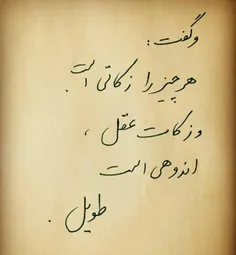 و گفت :
هر چیز را زکاتی است .
و زکات عقل ،
اندوهی است
طویل .